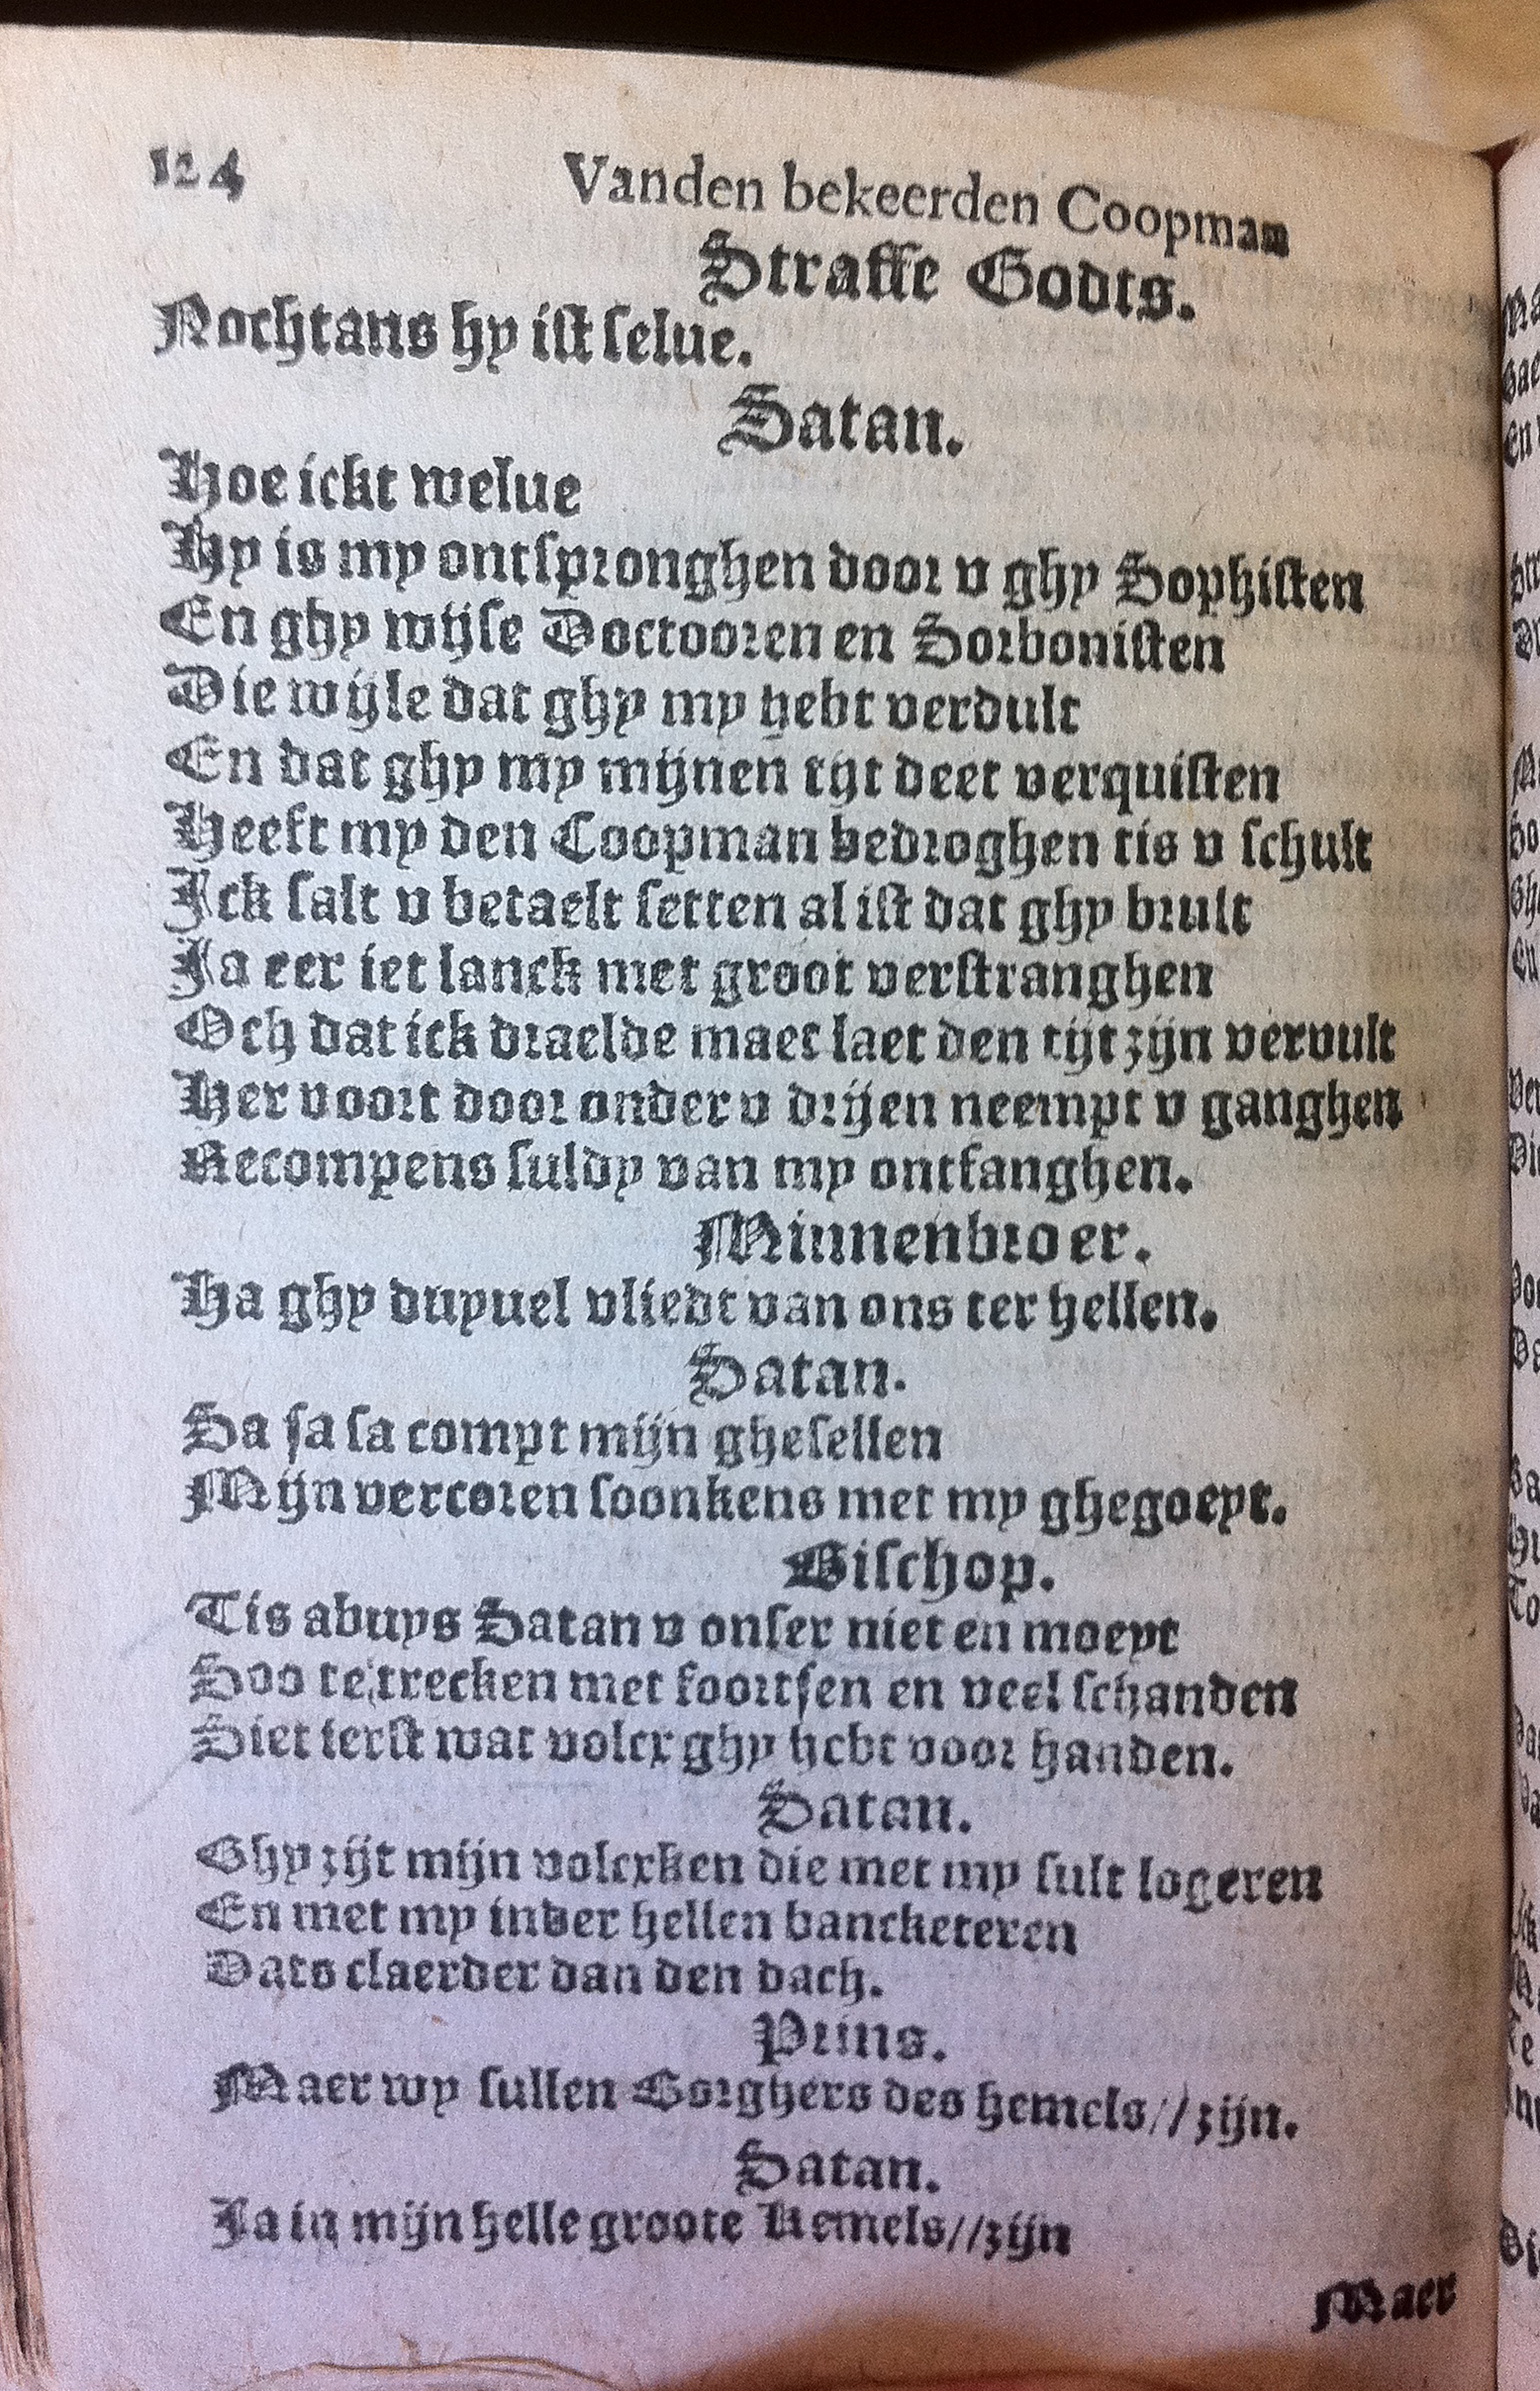 124 Vanden bekeerden Coopman
Straffe Godts.
Nochtans hy ist selue.
Satan.
Hoe ickt welue
Hy is my ontspronghen door v ghy Sophisten
En ghy wijse Doctooren en Sorbonisten
Die wijle dat ghy my hebt verdult
En dat ghy my mijnen tijt deet verquisten
Heeft my den Coopman bedroghen tis v schult
Ick salt v betaelt setten al ist dat ghy brult
Ja eer iet lanck met groot verstranghen
Och dat ick draelde maer laet den tijt zijn vervult
Her voort door onder v drijen neempt v ganghen
Recompens suldy van my ontfanghen.
Minnenbroer.
Ha ghy duyuel vliedt van ons ter hellen.
Satan.
Sa sa sa compt mijn ghesellen
Mijn vercoren soonkens met my ghegoeyt.
Bisschop.
Tis abuys Satan v onser niet en moeyt
Soo te trecken met foortsen en veel schanden
Siet ierst wat volcx ghy hebt voor handen.
Satan.
Ghy zijt mijn volcxken die met my sult logeren
En met my inder hellen bancketeren
Dats claerder dan den dach.
Prins.
Maer wy sullen Borghers des hemels//zijn.
Satan.
Ja in mijn helle groote Kemels//zijn
Maer